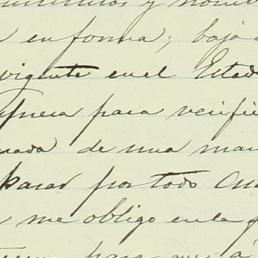 y nom
en forma; bajo
vigente en el Estad
para verifi
de una man
pasar por todo cua
me obligo en la
para